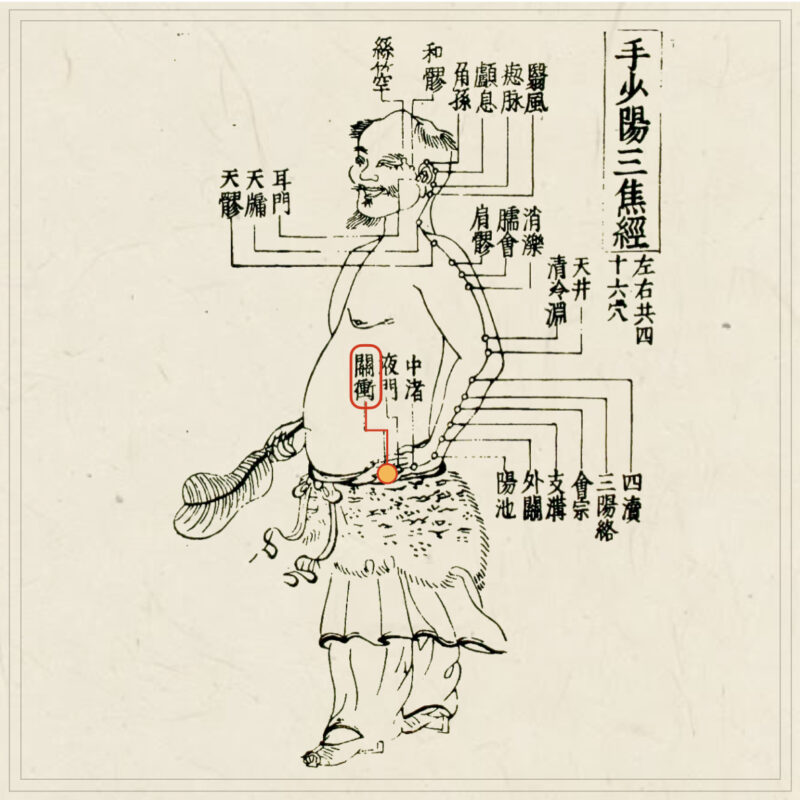 手少陽三焦經
左右共四
十六穴
翳風
瘈脉
顱息
角孫
和髎
絲竹空
耳門
天牖
天髎
消濼
臑會
肩髎
天井
清冷淵
中渚
液門
關衝
四瀆
三陽絡
會宗
支溝
外關
陽池